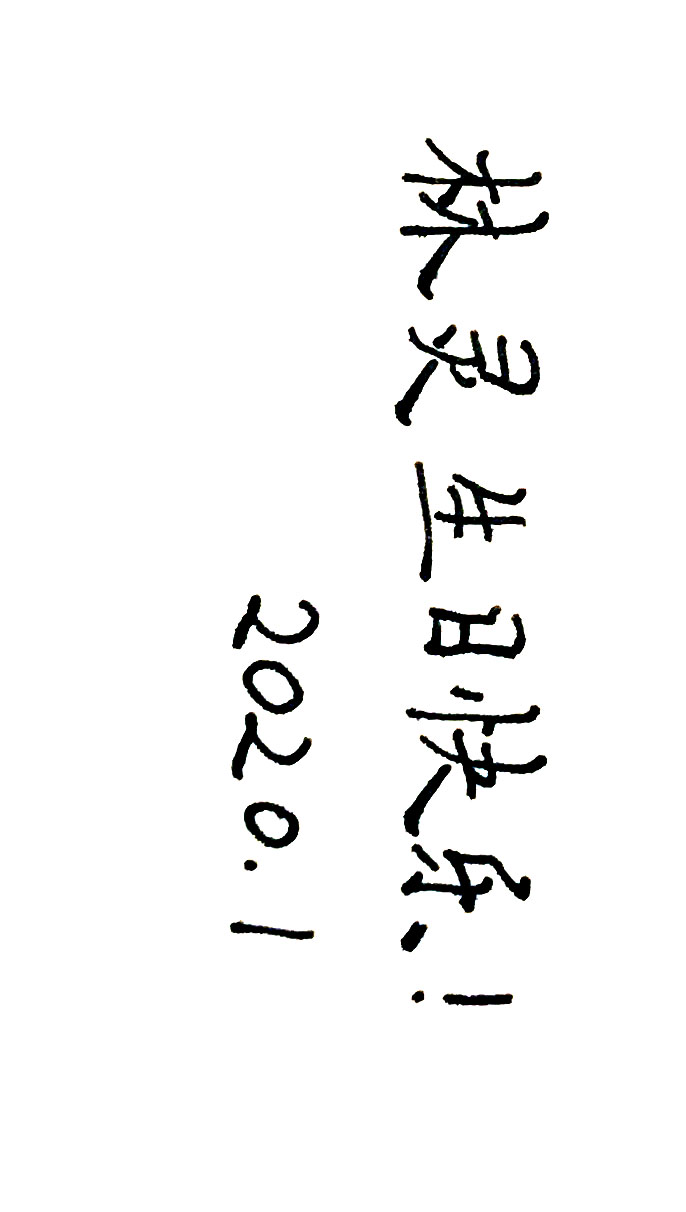 林灵生日快乐!
2020.1